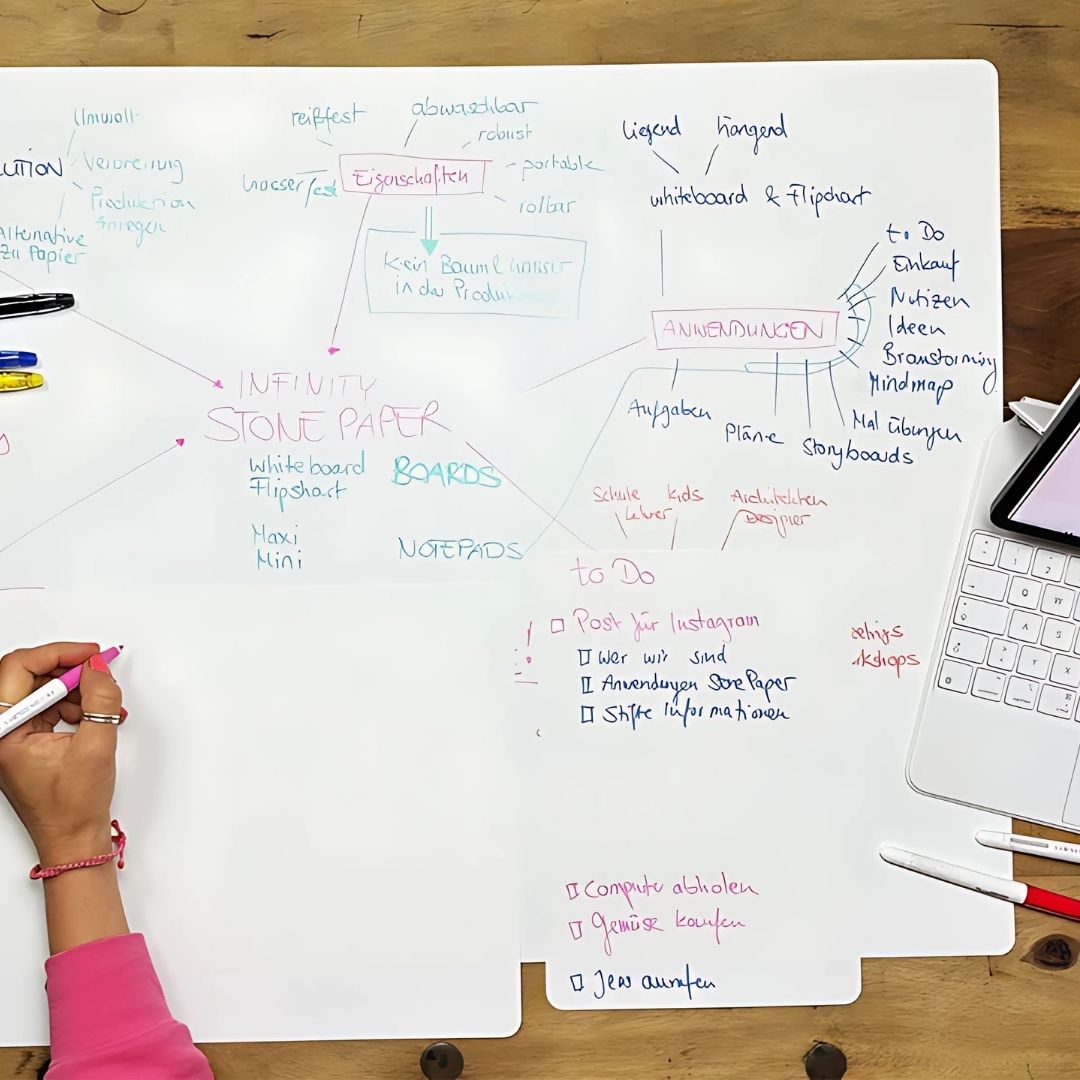 Umwelt
UTION
Produktion
Alternative
zu Papier
reißfest
abwaschbar
robust
portable
rollbar
wasserfest
Eigenschaften
Kein Baum & Wasser
in der Produk
liegend
hängend
whiteboard & Flipchart
to Do
Einkauf
Notizen
Ideen
Brainstorming
Mindmap
ANWENDUNGEN
Aufgaben
Pläne
Storyboards
Mal Übungen
INFINITY
STONE PAPER
whiteboard
Flipshart
BOARDS
Maxi
Mini
NOTEPADS
Schule
Lehrer
kids
Architekten
Designer
to Do
Post für Instagram
Wer wir sind
Anwendungen Stone Paper
Stifte Informationen
kshops
Computer abholen
Gemüse kaufen
Jens anrufen